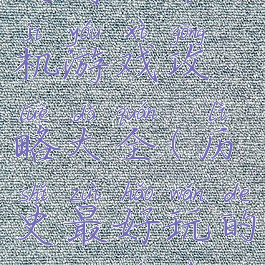 jī yóu xì gōng
机游戏攻
lüè dà quán lì
略大全(历
shǐ zuì hǎo wán de
史最好玩的